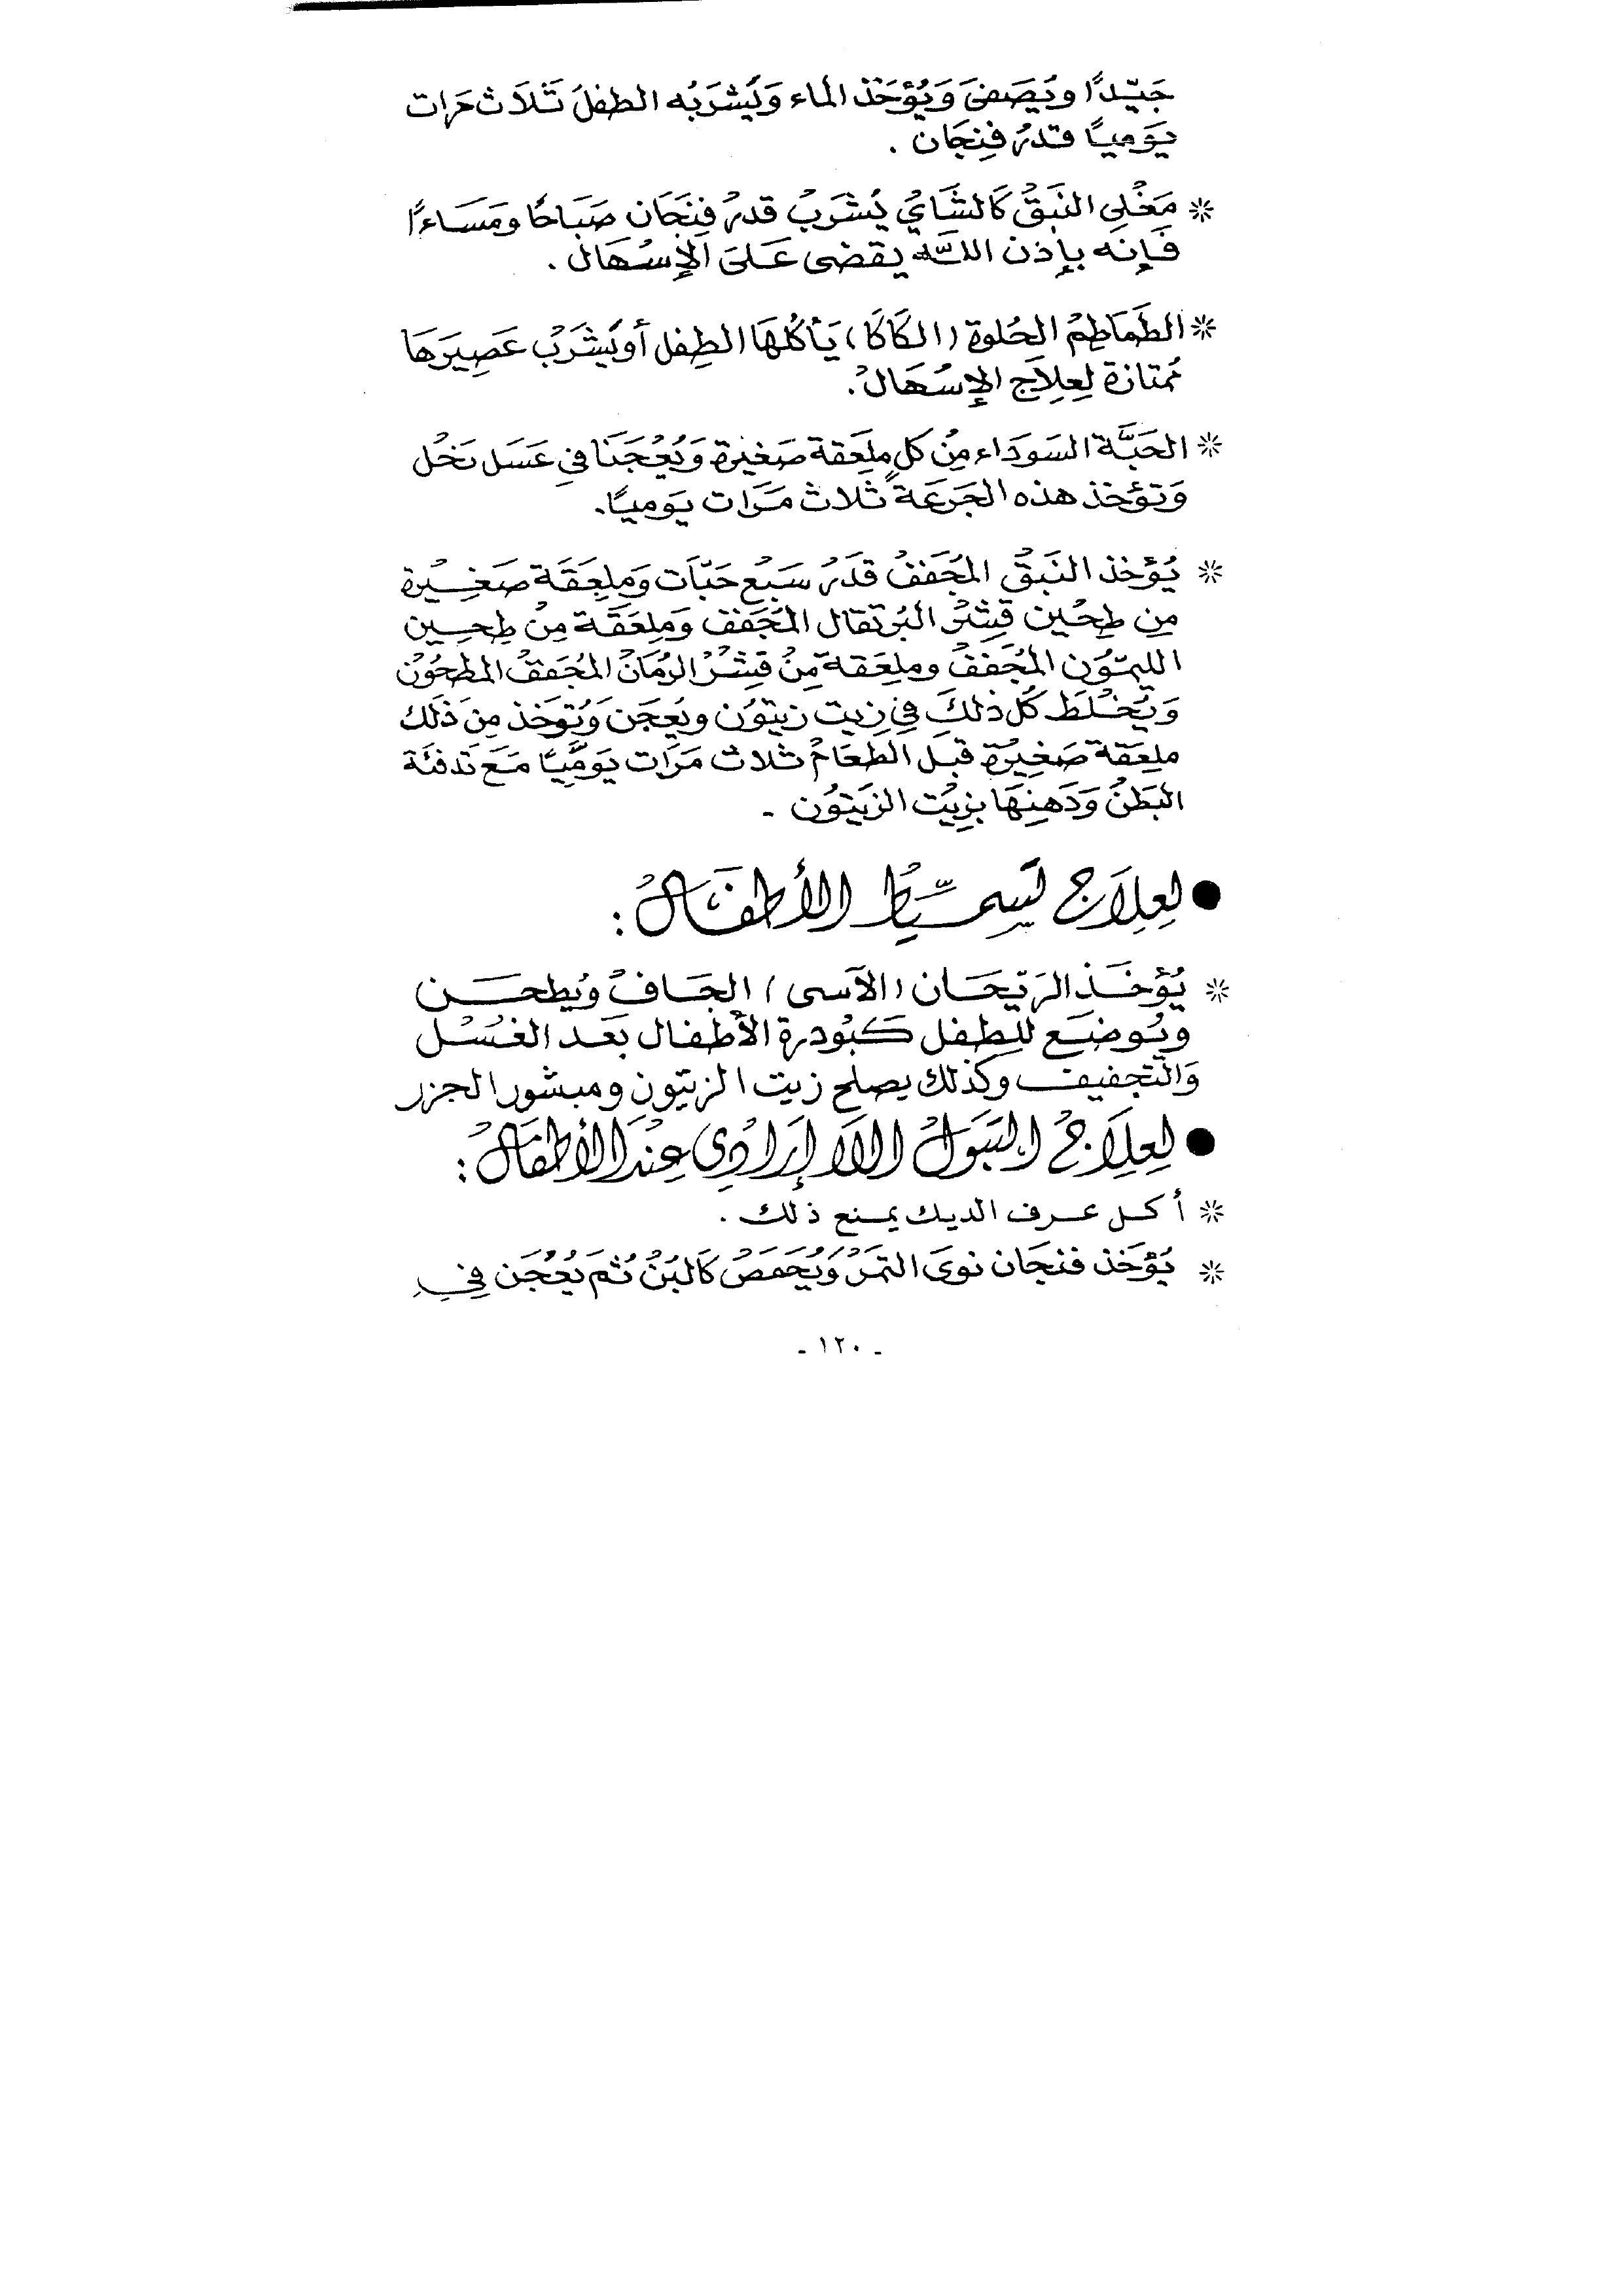 جَيّدًا ويُصَفىَ وَيُؤخَذ الماء وَيُشرَبُه الطفلُ ثَلَاث مَرات
يَوَميًا قدرُ فِنِجَان .
* مَغْلى النَبقُ كَالشَايُ يُشرَبُ قدرُ فِنجَان صَبَاحًا ومَسَاءًا
فَإنه بإذن اللّه يقضى عَلىَ الإسُهَال .
* الطَمَاطِمُ الحُلوة (الكَاكَا) يَأكُلهَا الطِفل أو يُشرَبُ عَصِيَرهَا
مُمتازة لِعِلاَج الإسُهَالُ .
* الحَبَّة السَودَاء مِنُ كل مِلعَقة صَغيَرة وَيُعُجَنَا في عَسَل نَحُل
وَتؤخذ هذه الجَرعَة ثلاث مَرَات يَوميًا .
* يُؤخذ النَبقُ المجُفَفُ قدَرُ سَبُع حَبّاَت وَملِعَقَة صَغِيُرة
مِن طِحُين قِشُر البُرتقال المُجَفف وَملِعَقَة مِنُ طِحِين
الليمُون المُجَففُ وملِعَقة مِنُ قِشُرُ الرُمَانُ المُجَففُ المطحُوُن
وَيُخلَط كُل ذلكَ في زيت زيتوُن ويُعجَن وَيُؤخَذ مِنَ ذَلك
ملِعَقة صَغِيُرة قبَل الطعَامُ ثلاث مَرَات يَوَميًّا مَعَ تَدفئَة
البَطنُ وَدَهِنِهَا بزيُت الزَيتوُن -
● لِعِلَاج تَسميُّط الأطفَالُ :
* يُؤخَذ الرَيّحَان (الآسى) الجَافُ ويُطحَن
ويُوضَع للطِفل كَبُودرة الأطفال بَعَد الغُسُل
وَالتجفيف وكَذلك يصلح زيت الزيتون ومبشور الجزر
● لِعِلَاجُ التبَوَلُ اللَا إرَادُي عِنُدَ الأطفَالُ :
* أكل عرف الديك يمنع ذلك .
* يُؤخَذ فنجَان نوىَ التمَرُ وَيُحَمَصُ كَالبُنُ ثُمَ يُعُجَن فيِ
- ١٢٠ -